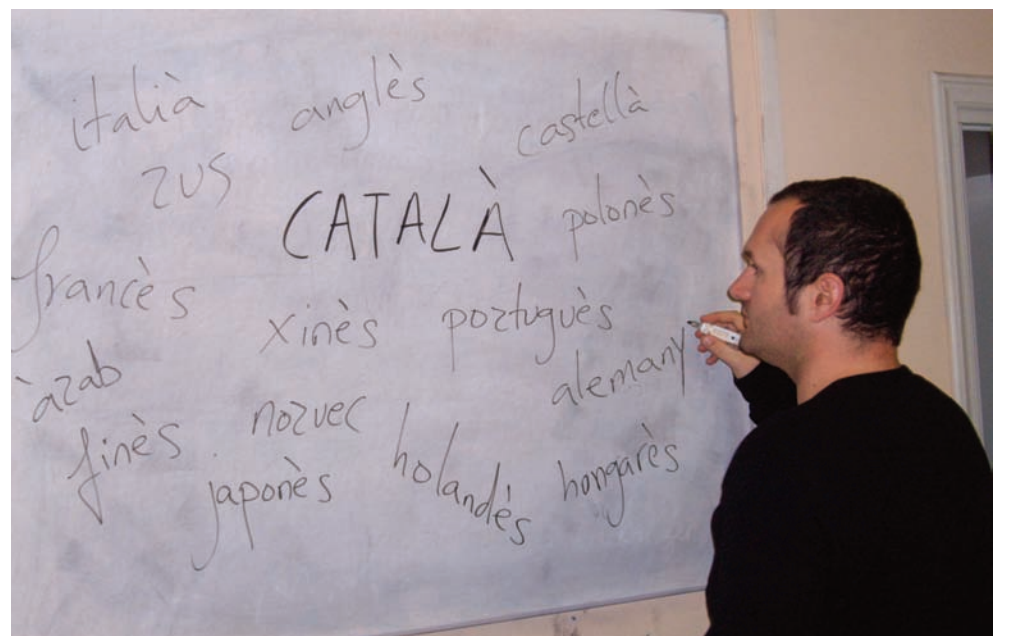 italià
anglès
castellà
rus
CATALÀ
polonès
francès
xinès
portuguès
àrab
alemany
finès
noruec
holandès
hongarès
japonès